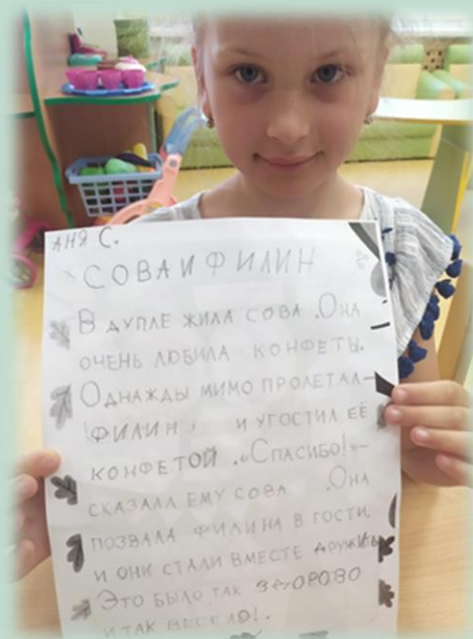 АНЯ С.
СОВА И ФИЛИН
В ДУПЛЕ ЖИЛА СОВА .ОНА
ОЧЕНЬ ЛЮБИЛА КОНФЕТЫ.
ОДНАЖДЫ МИМО ПРОЛЕТАЛ–
ФИЛИН И УГОСТИЛ ЕЁ
КОНФЕТОЙ .«СПАСИБО!»–
СКАЗАЛА ЕМУ СОВА .ОНА
ПОЗВАЛА ФИЛИНА В ГОСТИ.
И ОНИ СТАЛИ ВМЕСТЕ
ЭТО БЫЛО ТАК ЗДОРОВО
И ТАК ВЕСЕЛО!.